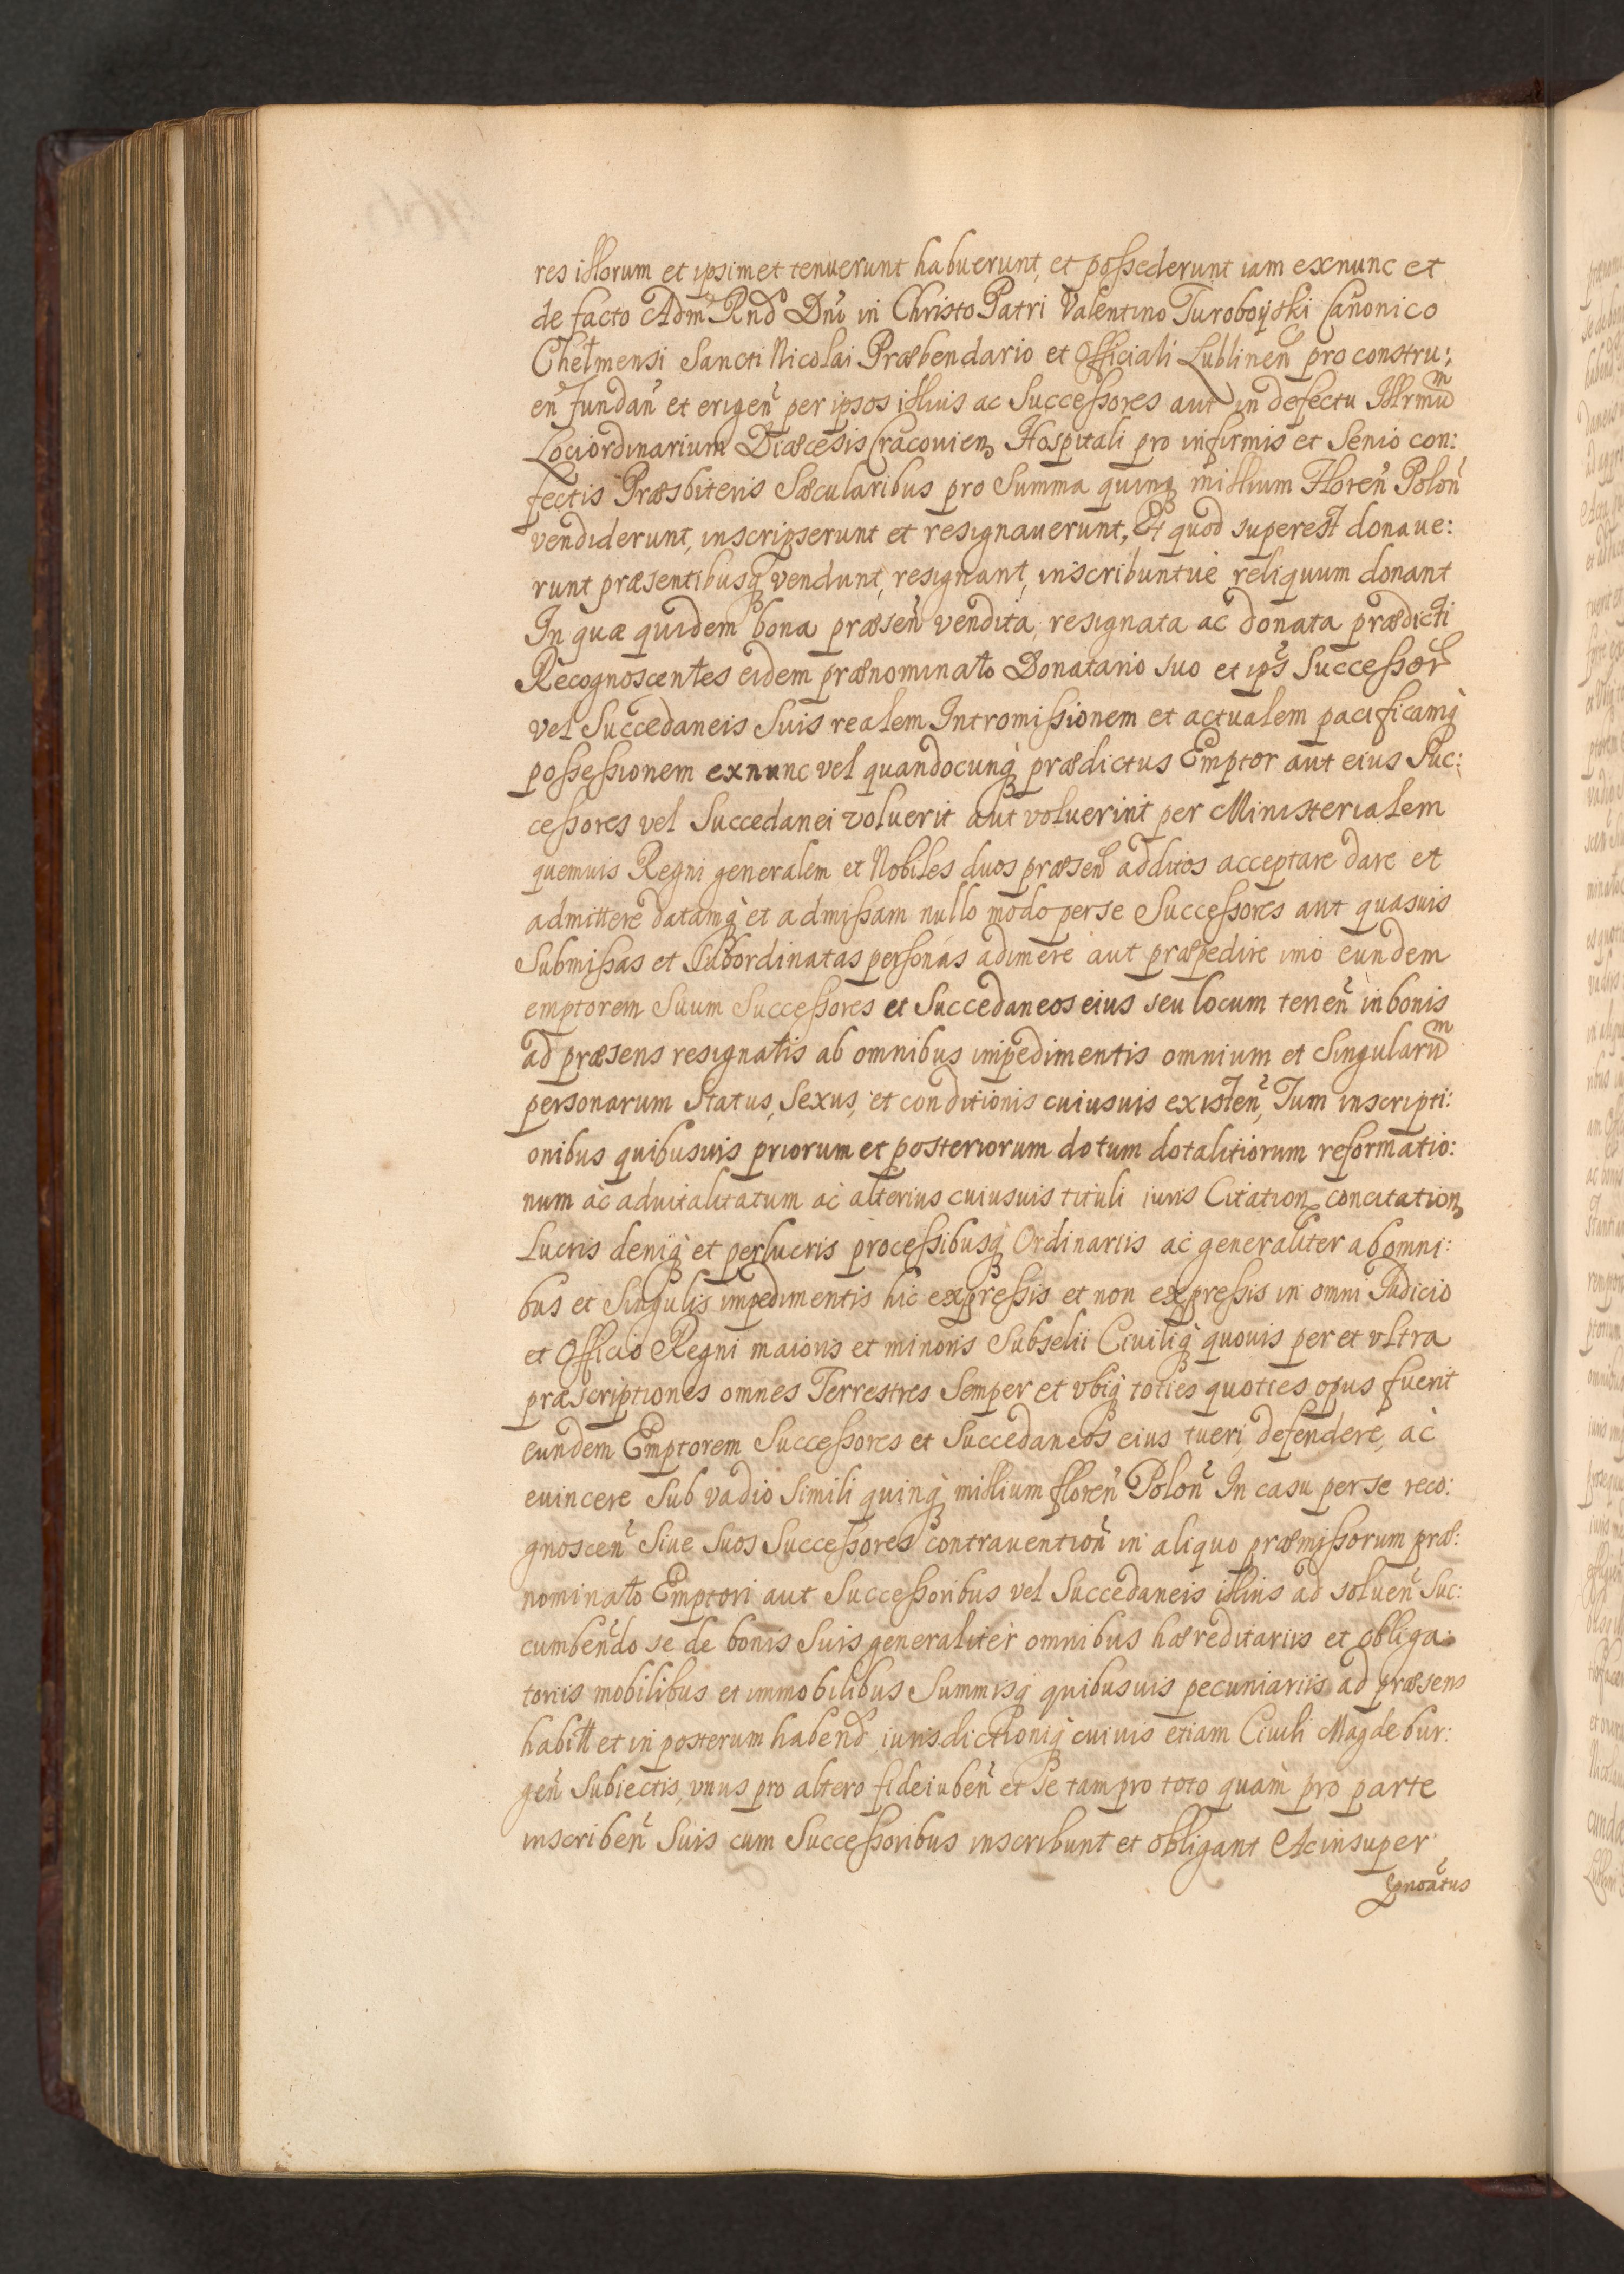 res illorum et ipsimet tenuerunt habuerunt, et possederunt iam exnunc et
de facto Adm Rnd Dnĩ in Christo Patri Valentino Turoboyski Cañonico
Chełmensi Sancti Nicolai Præbendario et Officiali Lublineñ pro constru:
eñ fundañ et erigeñ per ipsos illius ac Successores aut in defectu Illrmũm
Lociordinarium Diæcesis Cracouien Hospitali pro infirmis et Senio con:
fectis Præsbiteris Sæcularibus pro Summa quinq millium Floreñ Poloñ
vendiderunt, inscripserunt et resignauerunt, Et quod superest donaue:
runt præsentibusq vendunt, resignant, inscribuntue reliquum donant
In quæ quidem bona præseñ vendita, resignata ac donata prædicti
Recognoscentes eidem prænominato Donatario suo et ips Successor
vel Succedaneis Suis realem Intromissionem et actualem pacificamq
possessionem exnunc vel quandocunq prædictus Emptor aut eius Suc:
cessores vel Succedanei voluerit aut voluerint per Ministerialem
quemuis Regni generalem et Nobiles duos præseñ additos acceptare dare et
admittere datamq et admissam nullo modo per se Successores aut quasuis
Submissas et Subordinatas personas adimere aut præpedire imo eundem
emptorem Suum Successores et Succedaneos eius seu locum teneñ in bonis
ad præsens resignatis ab omnibus impedimentis omnium et Singularũm
personarum Status, Sexus, et conditionis cuiusuis existeñ, Tum inscripti:
onibus quibusuis priorum et posteriorum dotum dotalitiorum reformatio:
num ac aduitalitatum ac alterius cuiusuis tituli iuris Citation concitation
Lucris deniq et perlucris processibusq Ordinariis ac generaliter ab omni:
bus et Singulis impedimentis hic expressis et non expressis in omni Iudicio
et Officio Regni maioris et minoris Subselii Ciuiliq quouis per et vltra
præscriptiones omnes Terrestres Semper et vbiq toties quoties opus fuerit
eundem Emptorem Successores et Succedaneos eius tueri, defendere, ac
euincere Sub vadio Simili quinq millium floreñ Poloñ In casu per se reco:
gnosceñ Siue Suos Successores contrauentioñ in aliquo præmissorum præ:
nominato Emptori aut Successoribus vel Succedaneis illius ad solueñ Suc:
cumbeñdo se de bonis Suis generaliter omnibus hæreditariis et obliga:
toriis mobilibus et immobilibus Summisq quibusuis pecuniariis ad præsens
habitt et in posterum habend iurisdictioniq cuiuis etiam Ciuili Magdebur:
geñ Subiectis, vnus pro altero fideiubeñ et se tam pro toto quam pro parte
inscribeñ Suis cum Successoribus inscribunt et obligant Ac insuper
Ignoãtus